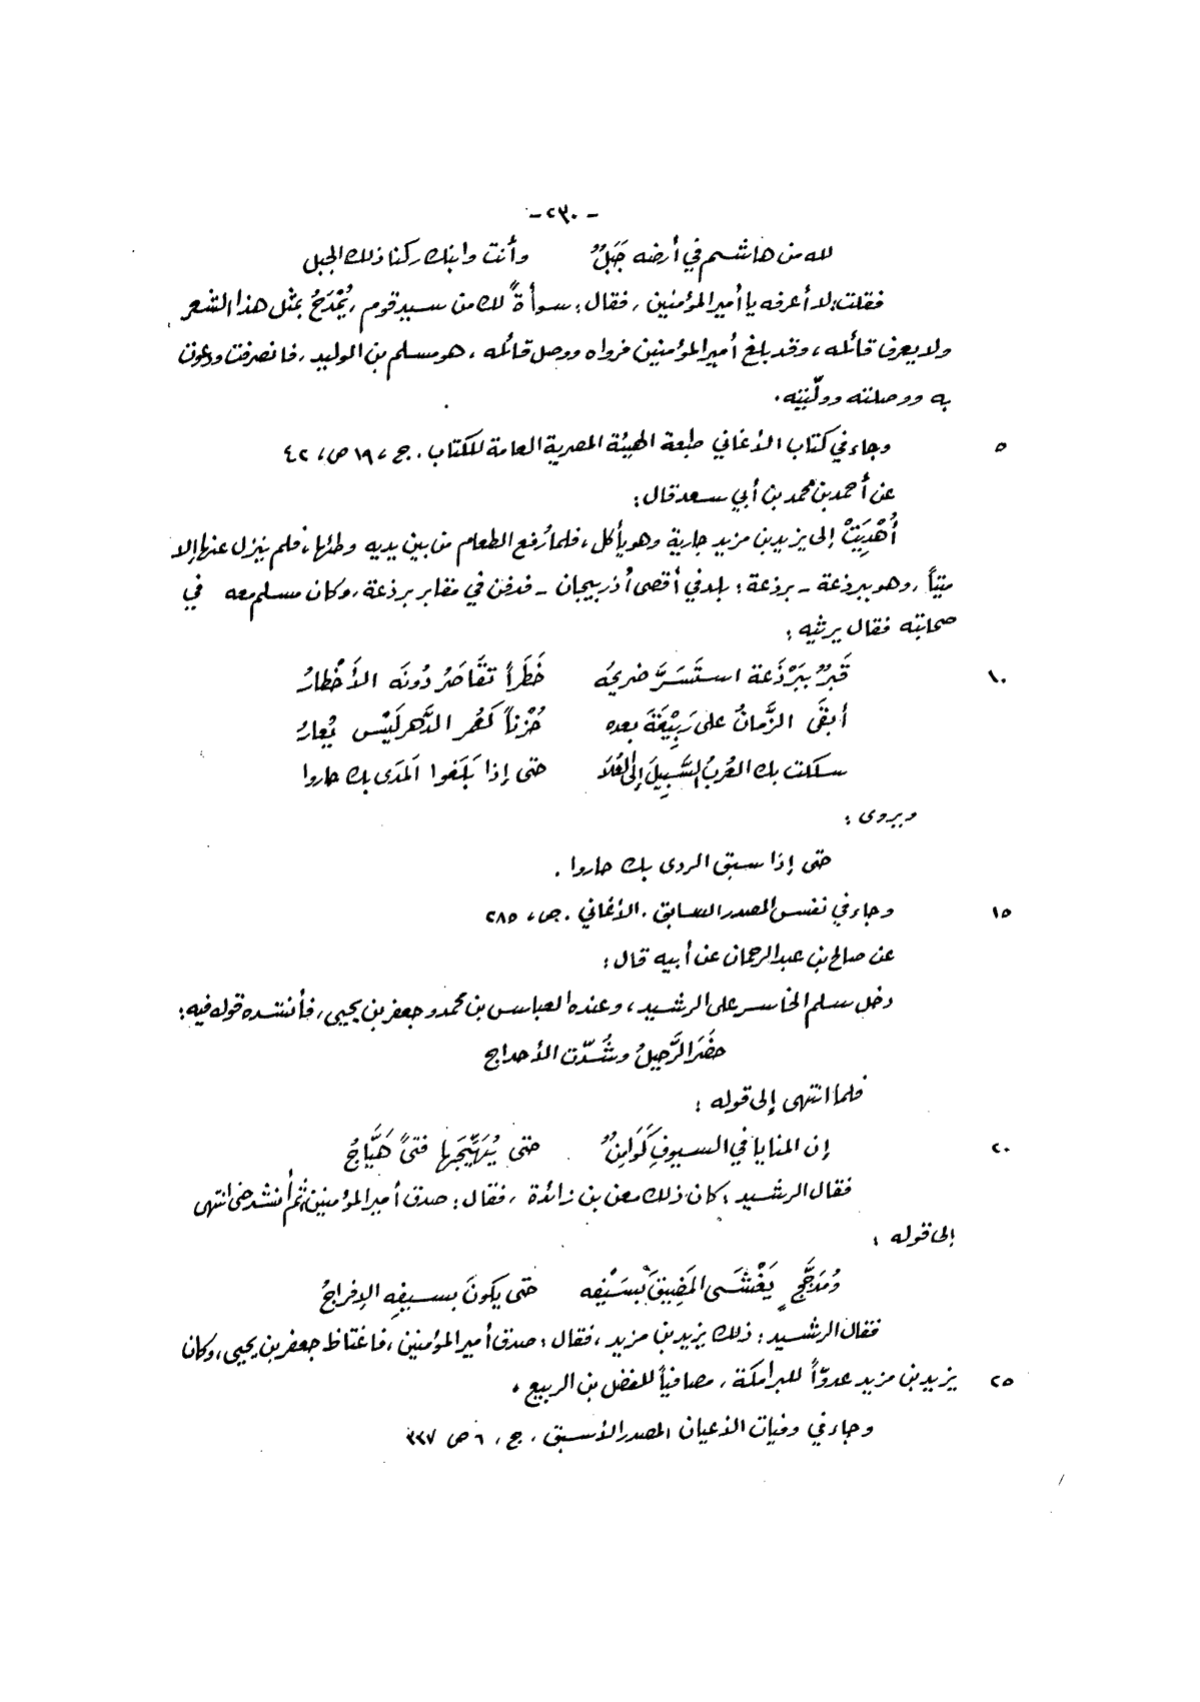 - ٢٣٠ -
لله من هاشم في أرضه جَبَلٌ وأنت وابنك ركنا ذلك الجبل
فقلت: لا أعرفه يا أمير المؤمنين، فقال: سوأةً لك من سيد قوم، يُمْدَحُ بمثل هذا الشعر
ولا يعرف قائله، وقد بلغ أمير المؤمنين فرواه ووصل قائله، هو مسلم بن الوليد، فانصرفت ودعوت
به ووصلته وولّيته.
٥ وجاء في كتاب الأغاني طبعة الهيئة المصرية العامة للكتاب. ج، ١٩ ص، ٤٢
عن أحمد بن محمد بن أبي سعد قال:
أُهْدِيَتْ إلى يزيد بن مزيد جارية وهو يأكل، فلما رُفع الطعام من بين يديه وطئها، فلم ينزل عنها إلا
ميتاً، وهو ببرذعة - برذعة: بلد في أقصى أذربيجان - فدفن في مقابر برذعة، وكان مسلم معه في
صحابته فقال يرثيه:
١٠ قَبرٌ بِبَرْذَعة استَسَرَّ ضريحُه خَطَراً تقَاصَرُ دُونَه الأَخْطارُ
أبقَى الزَّمانُ على رَبِيْعَةَ بعده حُزْناً كَعُمر الدَّهر لَيْس يُعارُ
سلكت بك العُربُ السَّبِيلَ إلى العُلَا حتى إذا بَلَغوا المَدَى بك حاروا
ويروى:
حتى إذا سبق الردى بك حاروا.
١٥ وجاء في نفس المصدر السابق. الأغاني. ص، ٢٨٥
عن صالح بن عبد الرحمان عن أبيه قال:
دخل سلم الخاسر على الرشيد، وعنده العباس بن محمد وجعفر بن يحيى، فأنشده قوله فيه:
حضَر الرَّحيلُ وشُدّت الأحداج
فلما انتهى إلى قوله:
٢٠ إن المنايا في السيوفِ كَوَامِنٌ حتى يُهَيِّجَها فتىً هَيَّاجُ
فقال الرشيد: كان ذلك معن بن زائدة، فقال: صدق أمير المؤمنين، ثم أنشد حتى انتهى
إلى قوله:
ومُدَجَّجٍ يَغْشَى المَضِيقَ بسَيْفِه حتى يكونَ بسيفِه الإفراجُ
فقال الرشيد: ذلك يزيد بن مزيد، فقال: صدق أمير المؤمنين، فاغتاظ جعفر بن يحيى، وكان
٢٥ يزيد بن مزيد عدوّاً للبرامكة، مصافياً للفضل بن الربيع.
وجاء في وفيات الأعيان المصدر الأسبق، ج، ٦ ص ٣٣٧